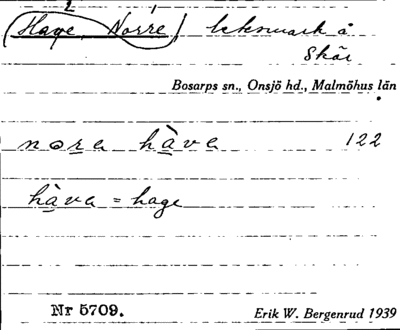 2 1
(Hage, Norre) lekemark å
Skär
Bosarps sn., Onsjö hd., Malmöhus län
nora hàva 122
hàva = hage
Nr 5709. Erik W. Bergenrud 1939